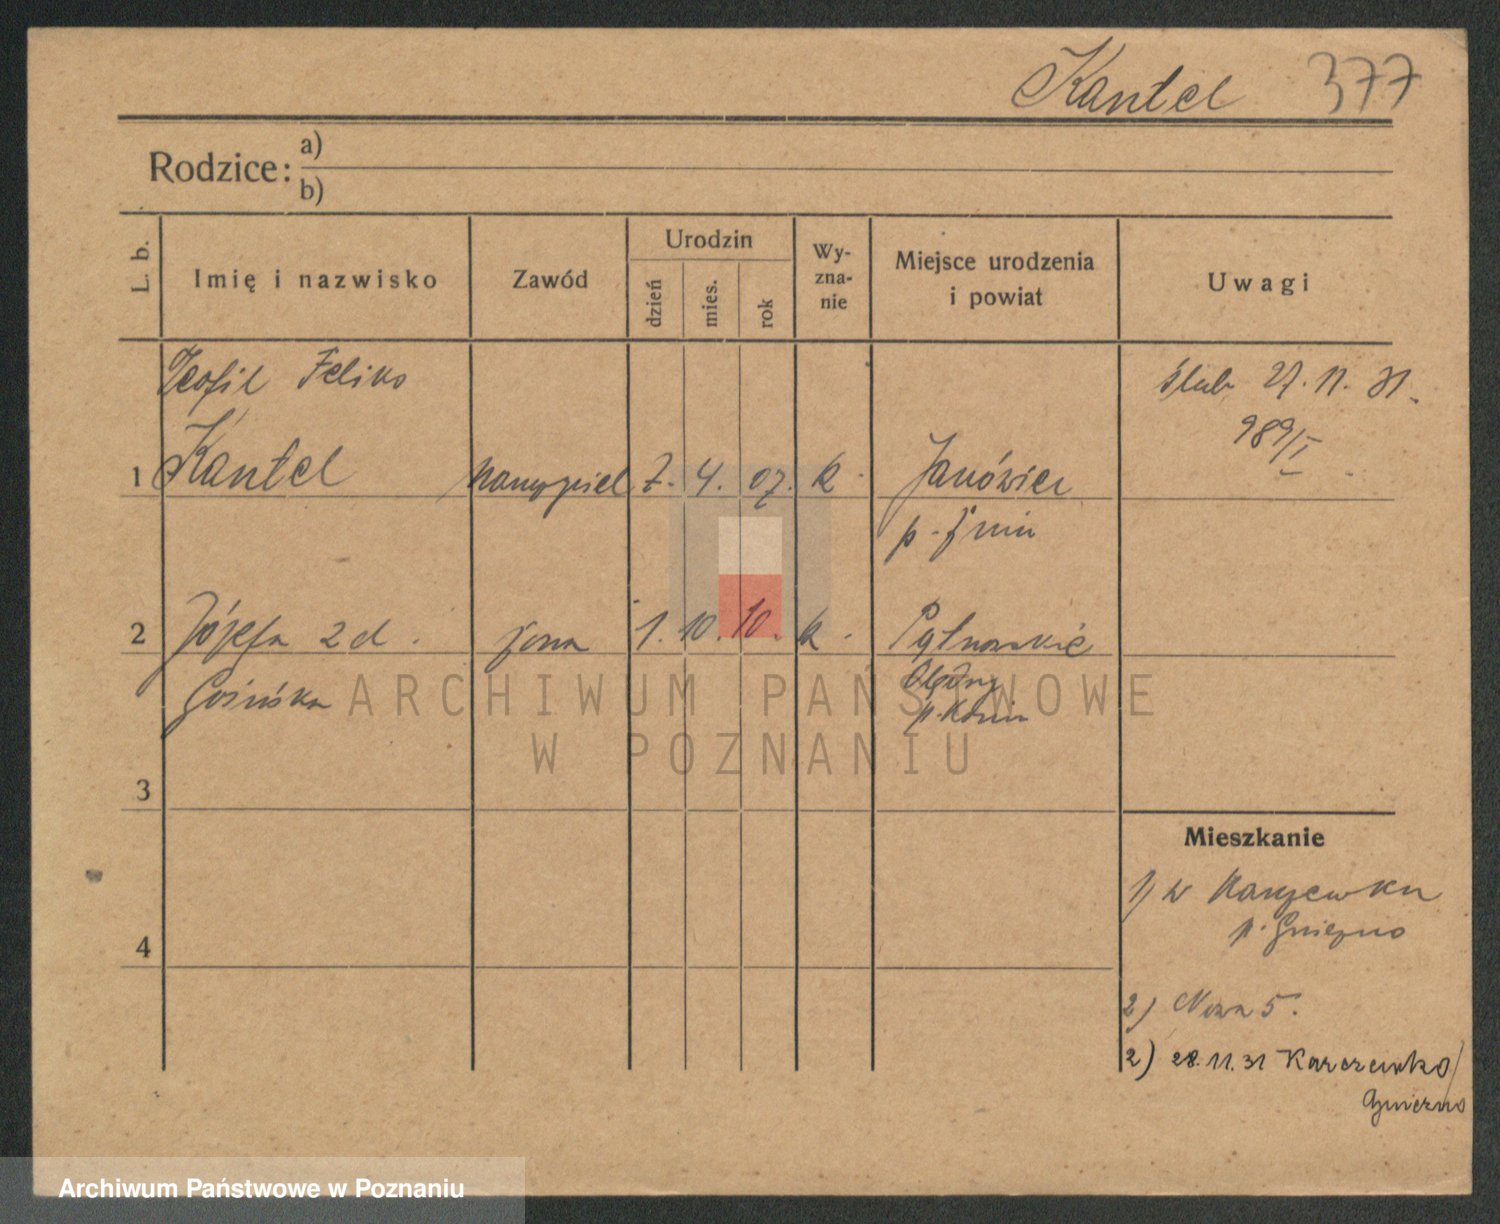 Kantel 377
Rodzice: a)
b)
L. b.
Imię i nazwisko
Zawód
Urodzin
dzień
mies.
rok
Wy-
zna-
nie
Miejsce urodzenia
i powiat
Uwagi
Teofil Feliks
ślub 27. 11. 31.
989/I
1 Kantel nauczyciel 7. 4. 07. k. Janówiec
p. Żnin
2 Józefa zd. żona 1. 10. 10. k.
Gosińska
p. Konin
ARCHIWUM PAŃSTWOWE
W POZNANIU
3
Mieszkanie
1) w Karczewku
p. Gniezno
4
2) Nowa 5.
2) 28.11.31 Karczewko/
Gniezno
Archiwum Państwowe w Poznaniu